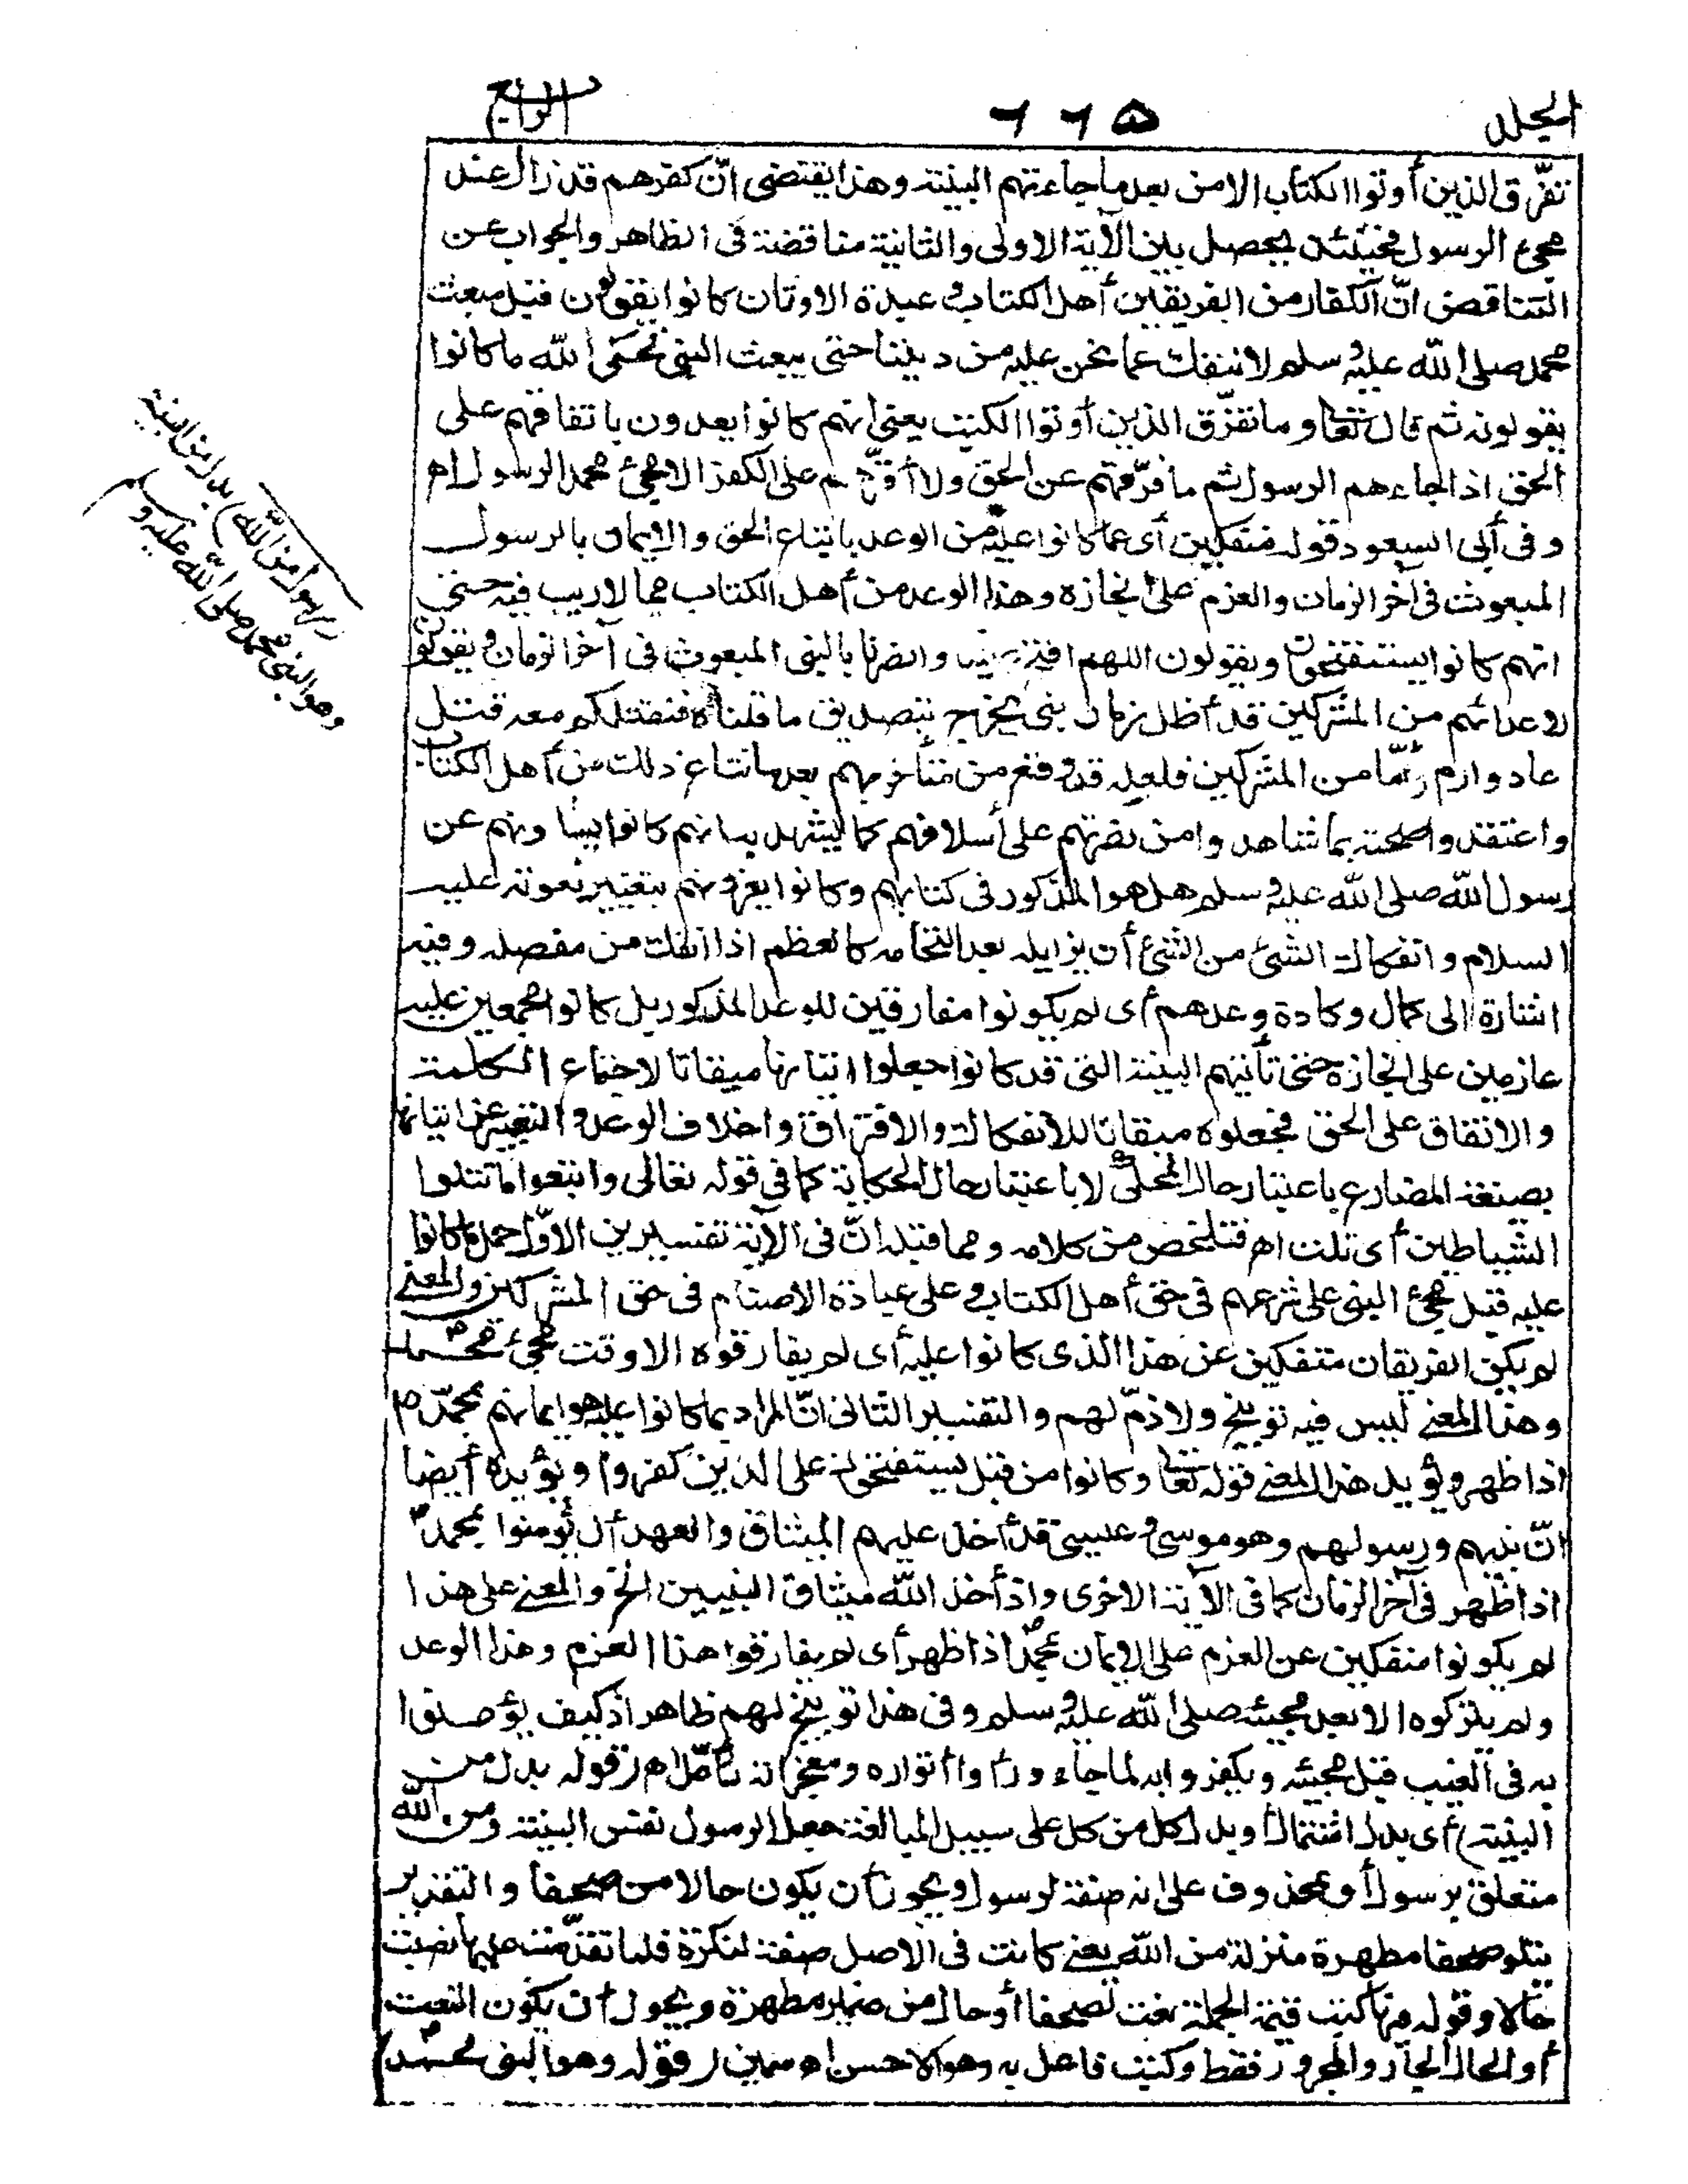 المجلد ٦٦٥ الرابع
تفرّق الذين أوتوا الكتاب الا من بعد ما جاءتهم البينة وهذا يقتضى انّ كفرهم قد زال عند
مجيء الرسول فحينئذ يحصل بين الآية الاولى والثانية مناقضة فى الظاهر والجواب عن
التناقض انّ الكفار من الفريقين أهل الكتاب و عبدة الاوثان كانوا يقولون قبل مبعث
محمد صلى الله عليه وسلم لا ننفك عما نحن عليه من ديننا حتى يبعث النبى فحكى الله ما كانوا
يقولونه ثم قال تعالى وما تفرّق الذين أوتوا الكتب يعنى انهم كانوا يعدون باتفاقهم على
الحق اذا جاءهم الرسول ثم ما فرّقهم عن الحق ولا أقرّهم على الكفر الا مجئ محمد الرسول اه
وفى أبى السعود قوله منفكين أى عما كانوا عليه من الوعد باتباع الحق والايمان بالرسول
المبعوث فى آخر الزمان والعزم على انجازه وهذا الوعد من أهل الكتاب مما لا ريب فيه حتى
انهم كانوا يستفتحون ويقولون اللهم افتح علينا وانصرنا بالنبى المبعوث فى آخر الزمان و يقولون
لاعدائهم من المشركين قد أظل زمان نبى يخرج بتصديق ما قلناه فنقتلكم معه قتل
عاد وارم وأمّا من المشركين فلعله قد وقع من متأخريهم بعد ما شاع ذلك من أهل الكتاب
واعتقدوا صحته بما شاهدوا من نصرتهم على أسلافهم كما يشهد به انهم كانوا يسألونهم عن
رسول الله صلى الله عليه وسلم هل هو المذكور فى كتابهم وكانوا يغرونهم بتغيير نعوته عليه
السلام وانفكاك الشئ من الشئ أن يزايله بعد التحامه كالعظم اذا انفك من مفصله وفيه
اشارة الى كمال وكادة وعدهم أى لم يكونوا مفارقين للوعد المذكور بل كانوا مجمعين عليه
عازمين على انجازه حتى تأتيهم البينة التى قد كانوا جعلوا اتيانها ميقاتا لاجتماع الكلمة
والاتفاق على الحق فجعلوه ميقاتا للانفكاك والافتراق واخلاف الوعد والتعبير عن اتيانها
بصيغة المضارع باعتبار حال المحكى لا باعتبار حال الحكاية كما فى قوله تعالى واتبعوا ما تتلوا
الشياطين أى تلت اه فتلخص من كلامه ومما قبله انّ فى الآية تفسيرين الاوّل حمل ما كانوا
عليه قبل مجئ النبى على شرعهم فى حق أهل الكتاب و على عبادة الاصنام فى حق المشركين والمعنى
لم يكن الفريقان منفكين عن هذا الذى كانوا عليه أى لم يفارقوه الا وقت مجئ محمد
وهذا المعنى ليس فيه توبيخ ولا ذمّ لهم والتفسير الثانى انّ المراد بما كانوا عليه هو ايمانهم بمحمّد ص
اذا ظهر ويؤيد هذا المعنى قوله تعالى وكانوا من قبل يستفتحون على الذين كفروا ويؤيده أيضا
انّ نبيهم ورسولهم وهو موسى و عيسى قد أخذ عليهم الميثاق والعهد أن يؤمنوا بمحمد ص
اذا ظهر فى آخر الزمان كما فى الآية الاخرى واذ أخذ الله ميثاق النبيين الخ والمعنى على هذا
لم يكونوا منفكين عن العزم على الايمان بمحمد ص اذا ظهر أى لم يفارقوا هذا العزم وهذا الوعد
ولم يتركوه الا بعد مجيئه صلى الله عليه وسلم وفى هذا توبيخ لهم ظاهر اذ كيف يؤمنوا
به فى الغيب قبل مجيئه ويكفروا به لما جاء ورأوا أنواره ومعجزاته تأمّل اه (قوله بدل من
البينة) أى بدل اشتمال أو بدل كل من كل على سبيل المبالغة جعل الرسول نفس البينة ومن الله
متعلق برسول أو بمحذوف على انه صفة لرسول ويجوز أن يكون حالا من صحفا والتقدير
يتلو صحفا مطهرة منزلة من الله يعنى كانت فى الاصل صفة لنكرة فلما تقدّمت عليها نصبت
حالا وقوله فيها كتب قيمة الجملة نعت لصحفا أو حال من ضمير مطهرة ويجوز أن يكون النعت
أو الحال الجار والمجرور فقط وكتب فاعل به وهو الاحسن اه سمين (قوله وهو النبى محمد)
رسول من الله) بدل من البينة
وهو النبى محمد صلى الله عليه وسلم